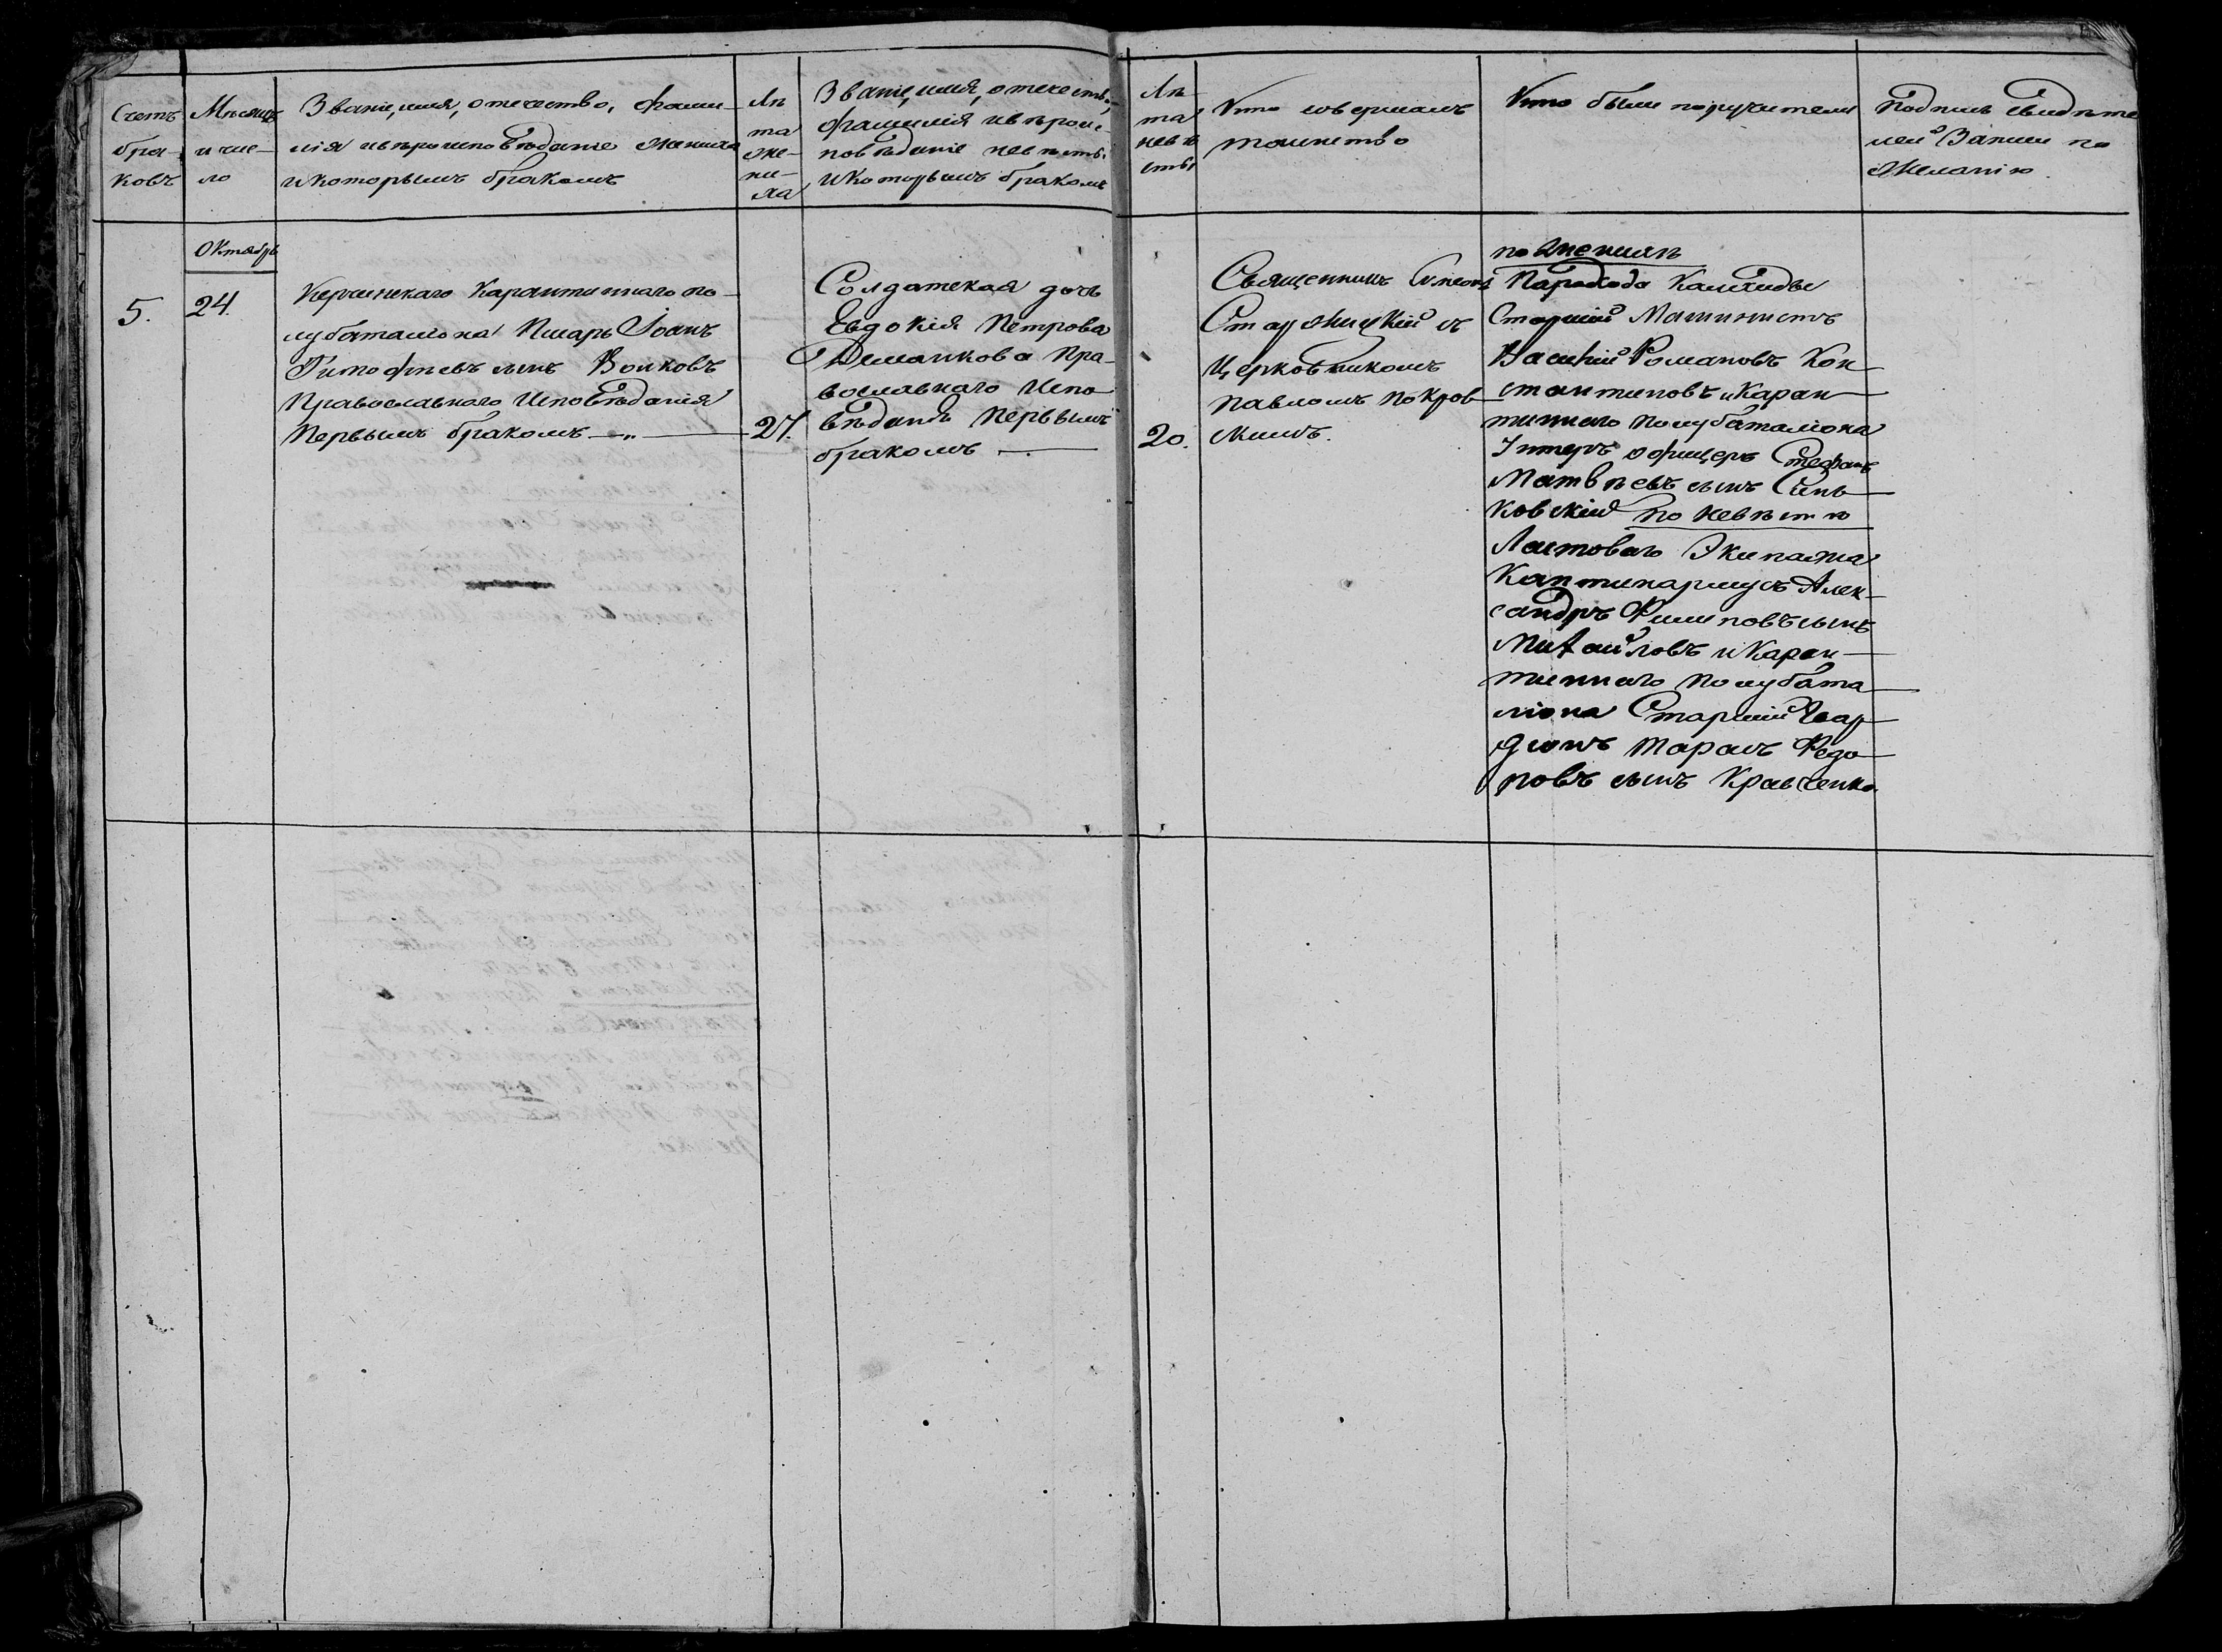 Счетъ
бра-
ковъ
Мѣсяцъ
и чис-
ло
Званіе, имя, отечество, фами-
лія и вѣроисповѣданіе жениха
и которымъ бракомъ
Лѣ
та
же-
ни-
ха
Званіе, имя, отечество,
фамилія и вѣроис-
повѣданіе невѣсты
и которымъ бракомъ
Лѣ-
та
невѣ
сты
Кто совершалъ
таинство
Кто были поручители
Подпись свидѣте
лей записи по
желанію.
5.
Октябрь
24.
Керчинскаго Карантиннаго по-
лубаталіона Писарь Іоанъ
Тимофѣевъ сынъ Волковъ
Православнаго Исповѣданія
Первымъ бракомъ
27.
Солдатская дочь
Евдокія Петрова
Пра-
вославнаго Испо
вѣданія Первымъ
бракомъ
20.
Священникъ Симеонъ
Стар съ
Церковникомъ
Павломъ Покров
скимъ.
по Женихѣ
Парохода Колхиды
Старшій Машинистъ
Василій Романовъ Кон-
стантиновъ и Каран-
тиннаго полубаталіона
Унтеръ офицеръ Стефанъ
Матвѣевъ сынъ Синь-
ковскій по невѣстѣ
Ластоваго Экипажа
Каптинармусъ Алек-
сандръ Филиповъ сынъ
Михайловъ и Каран-
тиннаго полубата-
ліона Старшій Гвар-
діонъ Тарасъ Федо-
ровъ сынъ Кравченко